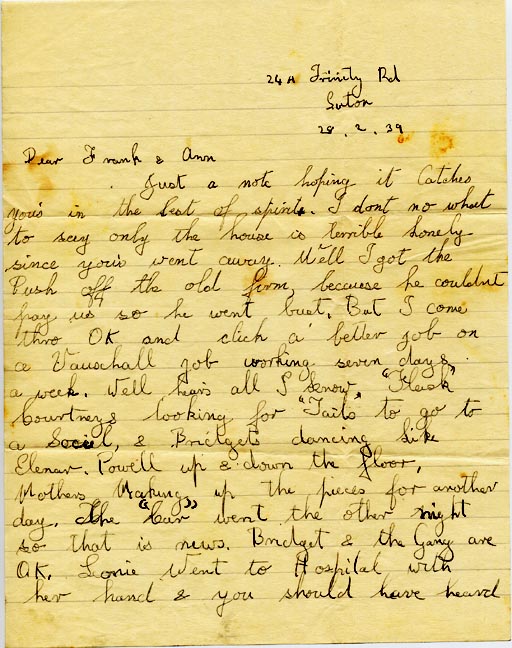 24A Trinity Rd
Luton
28.2.39
Dear Frank & Ann
Just a note hoping it Catches
you's in the best of spirits. I dont no what
to say only the house is terrible lonely
since you's went away. Well I got the
Push off the old firm, because he couldnt
pay us so he went bust. But I come
thro OK and click a better job on
a Vauxhall job working seven days
a week. Well hears all I know "Flash"
Courtneys looking for "Tails" to go to
a Social, & Bridgets dancing like
Elenar. Powell up & down the floor,
Mothers Making up the pieces for another
day. The "Car" went the other night
so that is news. Bridget & the Gang are
OK. Leonie Went to Hospital with
her hand & you should have heard